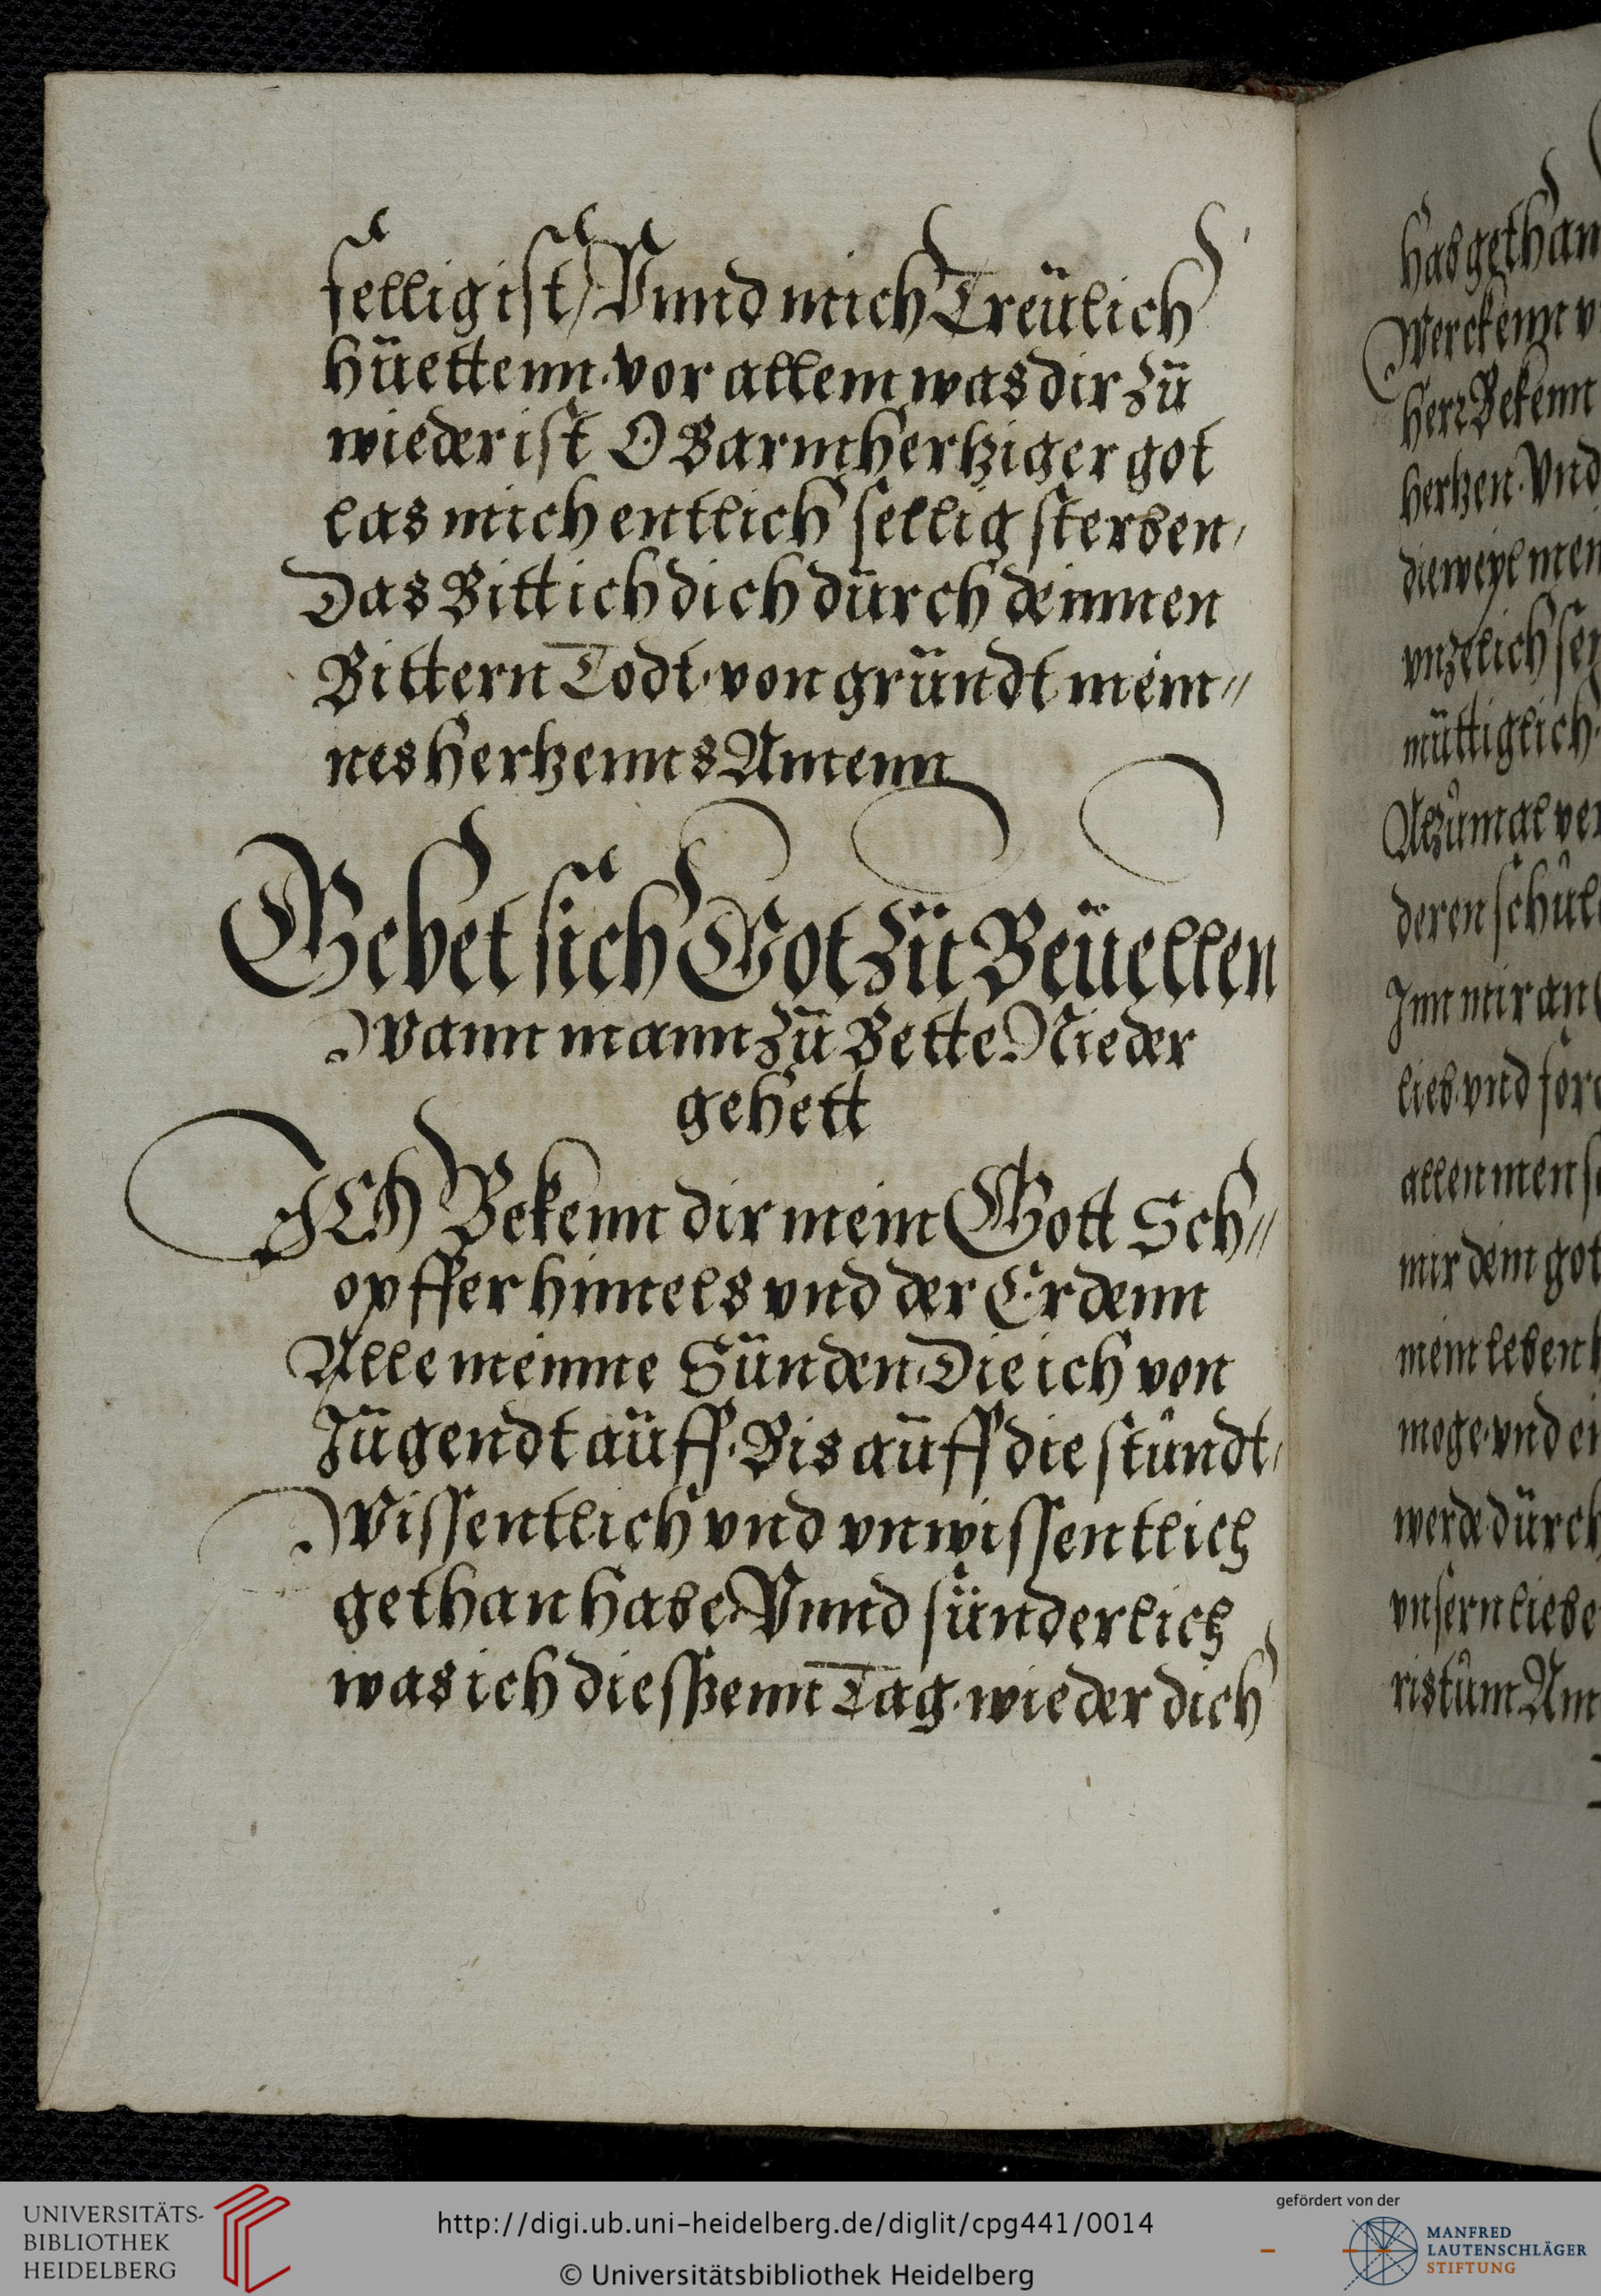 sellig ist, Vnnd mich Treülich
hüettenn. vor allem was dir zü
wieder ist O Barmhertziger got
las mich entlich sellig sterben,
Das Bitt ich dich dürch deinnen
Bittern Todt. von gründt mein⸗
nes hertzenns Amenn
Gebet sich Got zü Beüellen
Wann mann zü Bette Nieder
gehett
ICh Bekenn dir mein Gott Sch⸗
opffer himels vnd der Erdenn
Alle meinne Sünden. Die ich von
Jügendt aüff. Bis aüff die stündt,
Wissentlich vnd vnwissentlich
gethan habe. Vnnd sünderlich
was ich diesszenn Tag. wieder dich
hab gethan
Werckenn v
herr Bekenn
hertzen. Vnd
dieweyl mei
vnzelich se
müttiglich
Alzümal ver
deren schül
Jnn mir an
lieb. vnd for
allen mensc
mir dein got
mein leben
moge. vnd ei
werde dürch
vnsern liebe
ristüm Am
UNIVERSITÄTS-
BIBLIOTHEK
HEIDELBERG
http://digi.ub.uni-heidelberg.de/diglit/cpg441/0014
© Universitätsbibliothek Heidelberg
gefördert von der
MANFRED
LAUTENSCHLÄGER
STIFTUNG